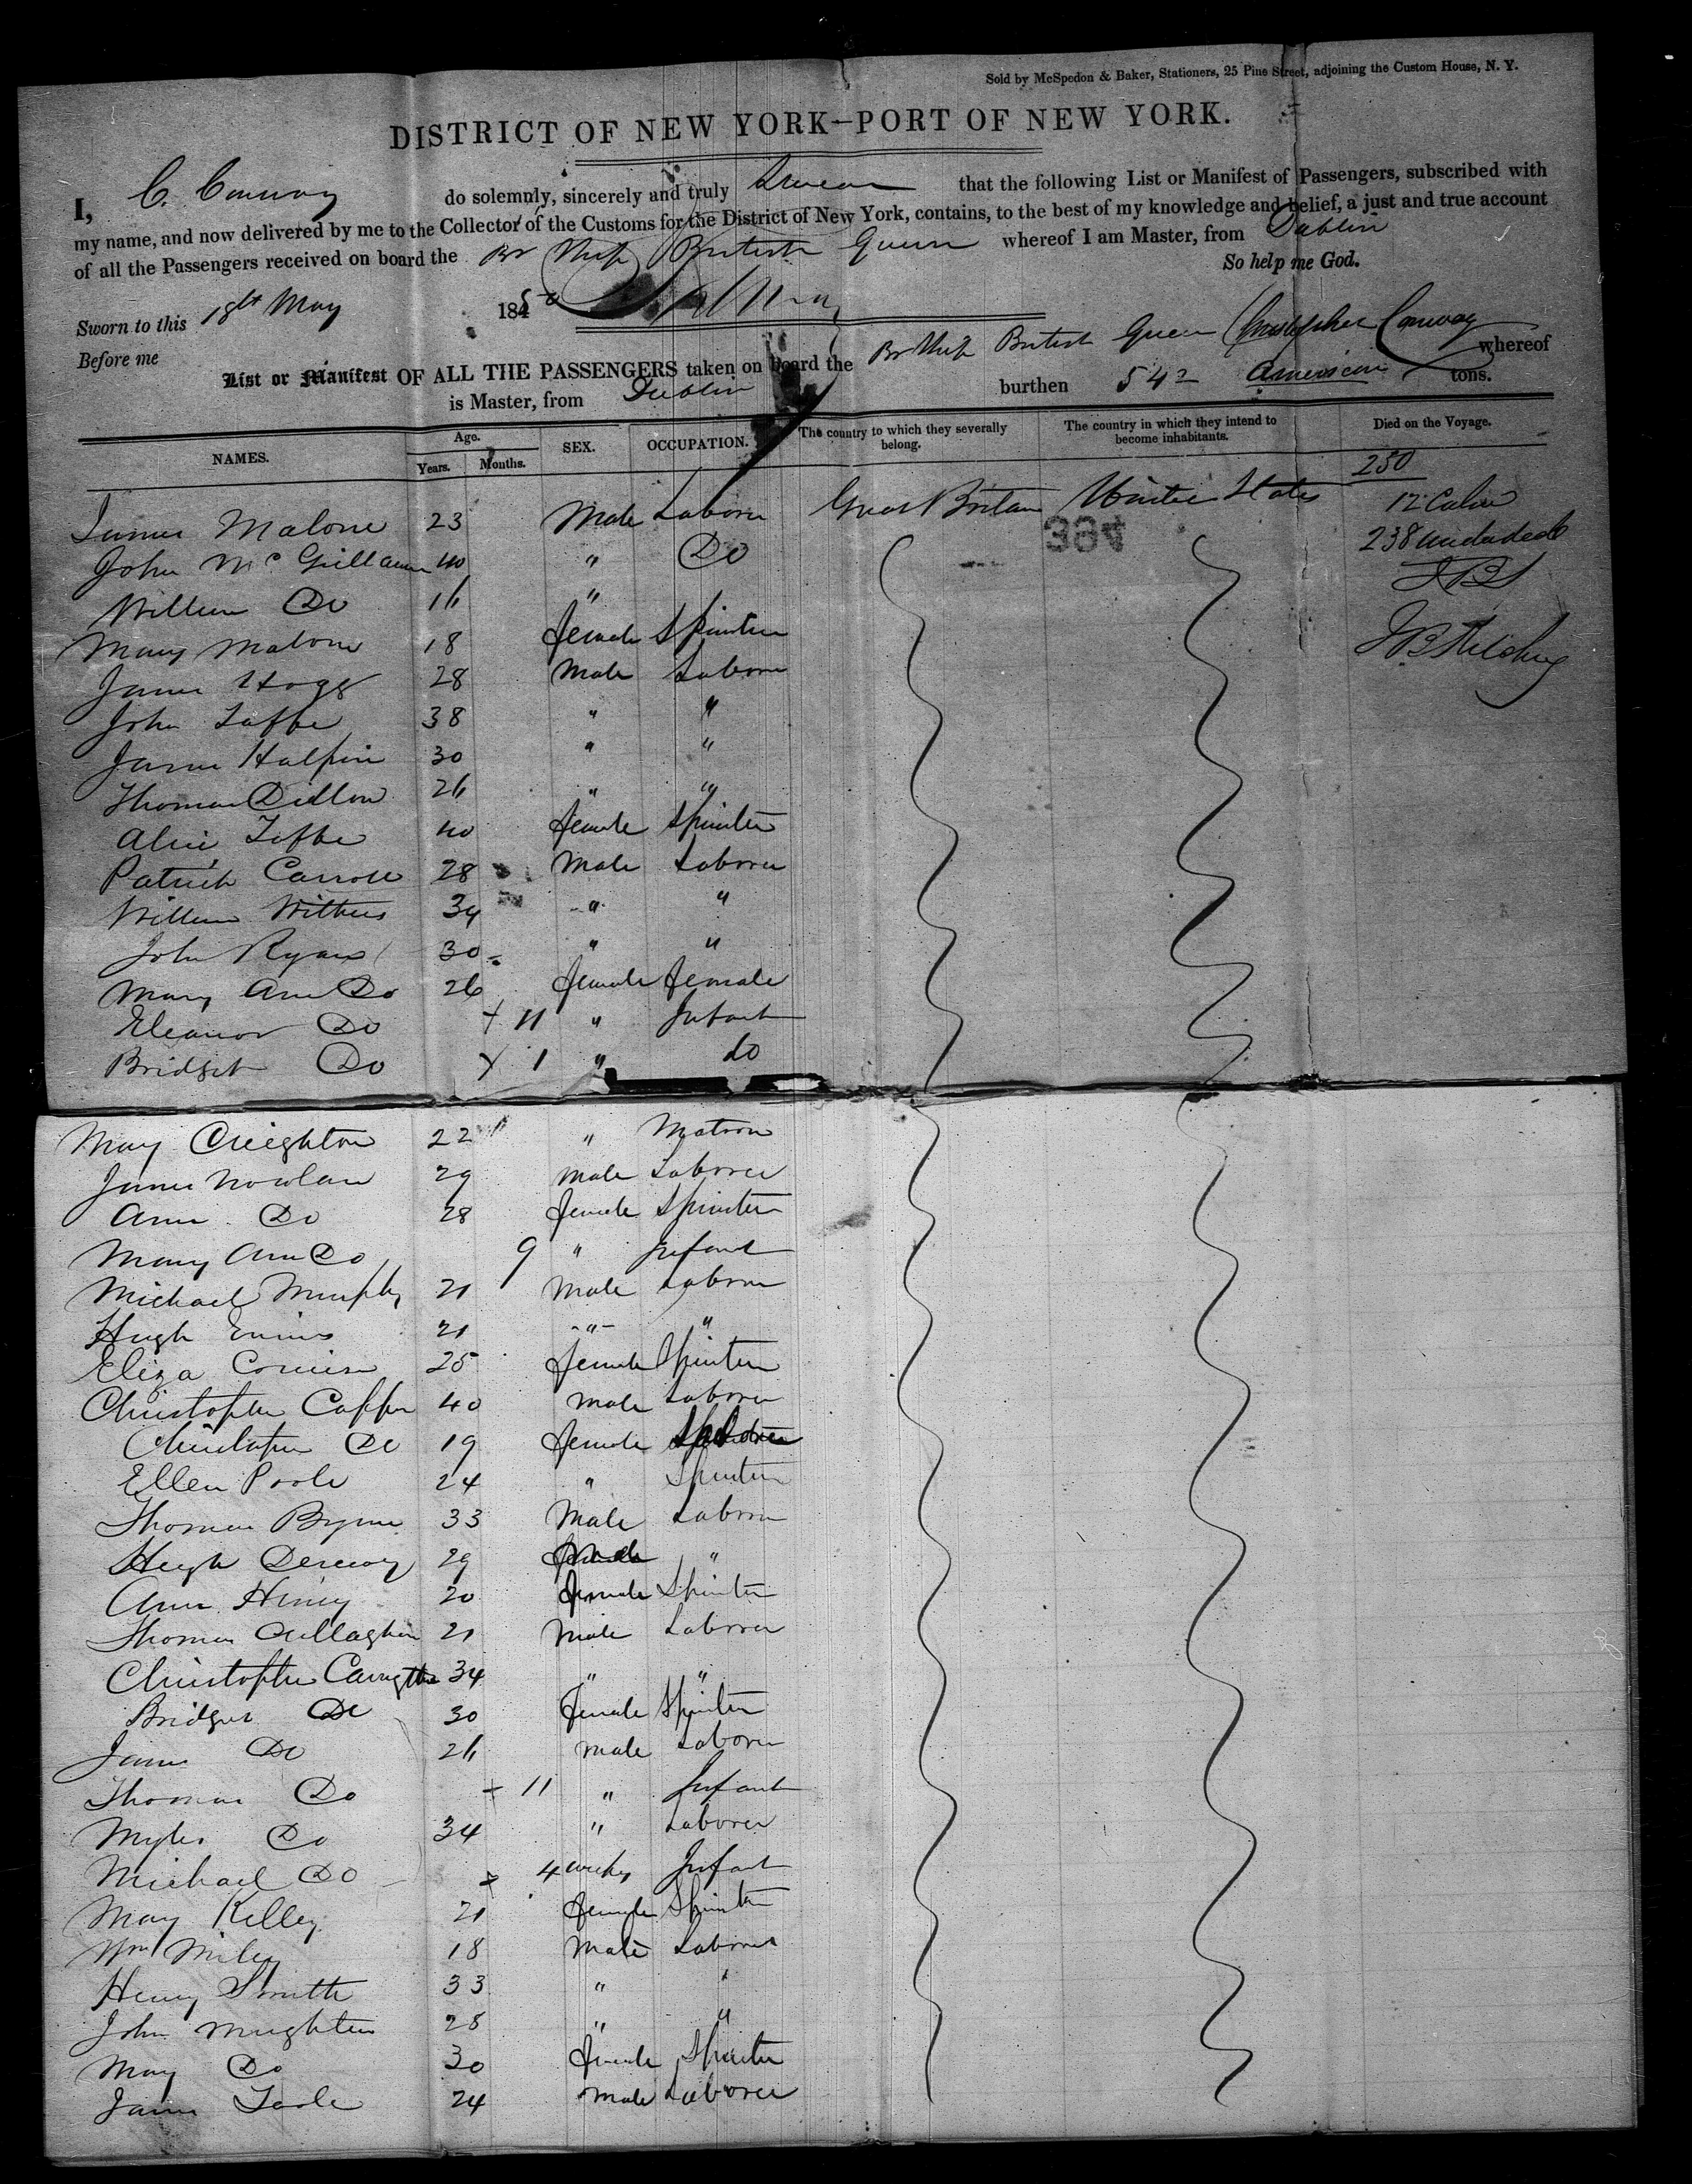 Sold by McSpedon & Baker, Stationers, 25 Pine Street, adjoining the Custom House, N. Y.
DISTRICT OF NEW YORK—PORT OF NEW YORK.
I, C. Conway do solemnly, sincerely and truly Swear that the following List or Manifest of Passengers, subscribed with
my name, and now delivered by me to the Collector of the Customs for the District of New York, contains, to the best of my knowledge and belief, a just and true account
of all the Passengers received on board the Br Ship British Queen whereof I am Master, from Dublin
So help me God.
Sworn to this 18th May 1850
Before me
List or Manifest OF ALL THE PASSENGERS taken on board the Br Ship British Queen Christopher Conway whereof
is Master, from Dublin burthen 542 American tons.
NAMES. Age. Years. Months. SEX. OCCUPATION. The country to which they severally belong. The country in which they intend to become inhabitants. Died on the Voyage.
250
James Malone 23 Male Laborer Great Britain United States 12 Cabin
384
John 40 " Do 238
William Do 16 "
Mary Malone 18 female Spinster
James Hogg 28 Male Laborer
John Taffe 38 " "
James Halpin 30 " "
Thomas Dillon 26 " "
Alice Taffe 40 female Spinster
Patrick Carroll 28 Male Laborer
William Withers 34 " "
John Ryan 30 " "
Mary Ann Do 26 female female
Eleanor Do + 11 " Infant
Bridget Do + 1 " do
May Creighton 22 " Matron
James Nowlan 29 male Laborer
Ann Do 28 female Spinster
Mary Ann Do 9 " Infant
Michael Murphy 21 Male Laborer
Hugh Ennis 21 " "
Eliza 25 female Spinster
Christopher 40 male Laborer
Do 19 female
Ellen Poole 24 " Spinster
Thomas Byrne 33 Male Laborer
Hugh 29 "
Ann Henry 20 female Spinster
Thomas Cullaghan 21 Male Laborer
Christopher 34 " "
Bridget Do 30 female Spinster
James Do 26 male Laborer
Thomas Do + 11 " Infant
Myles Do 34 " Laborer
Michael Do + 4 weeks Infant
May Kelley 21 female Spinster
Wm Miley 18 Male Laborer
Henry Smith 33 " "
John 28 " "
May Do 30 female Spinster
James Toole 24 male Laborer